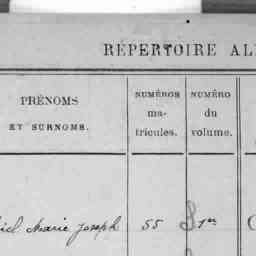 RÉPERTOIRE AL
PRÉNOMS
ET SURNOMS.
NUMÉROS
ma-
tricules.
NUMÉRO
du
volume.
Marie Joseph 55 1er